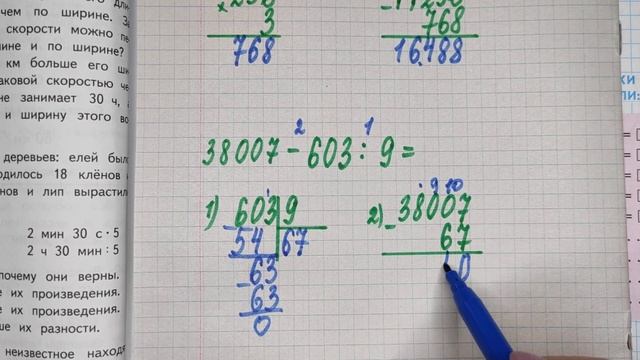 чем по ширине. За
скорости можно пе
ине и по ширине?
км больше его ши
аковой скоростью че
не занимает 30 ч, а
и ширину этого во
деревьев: елей было
одилось 18 клёнов и
нов и лип вырастил
2 мин 30 с · 5
2 ч 30 мин : 5
почему они верны.
е их произведения.
е их произведения.
ше их разности.
неизвестное находя
× 3
768
- 768
16488
2 1
38007 - 603 : 9 =
1) 603 9
54 67
- 63
63
0
9 10
2) - 38007
67
0
КИ
ЛИ: